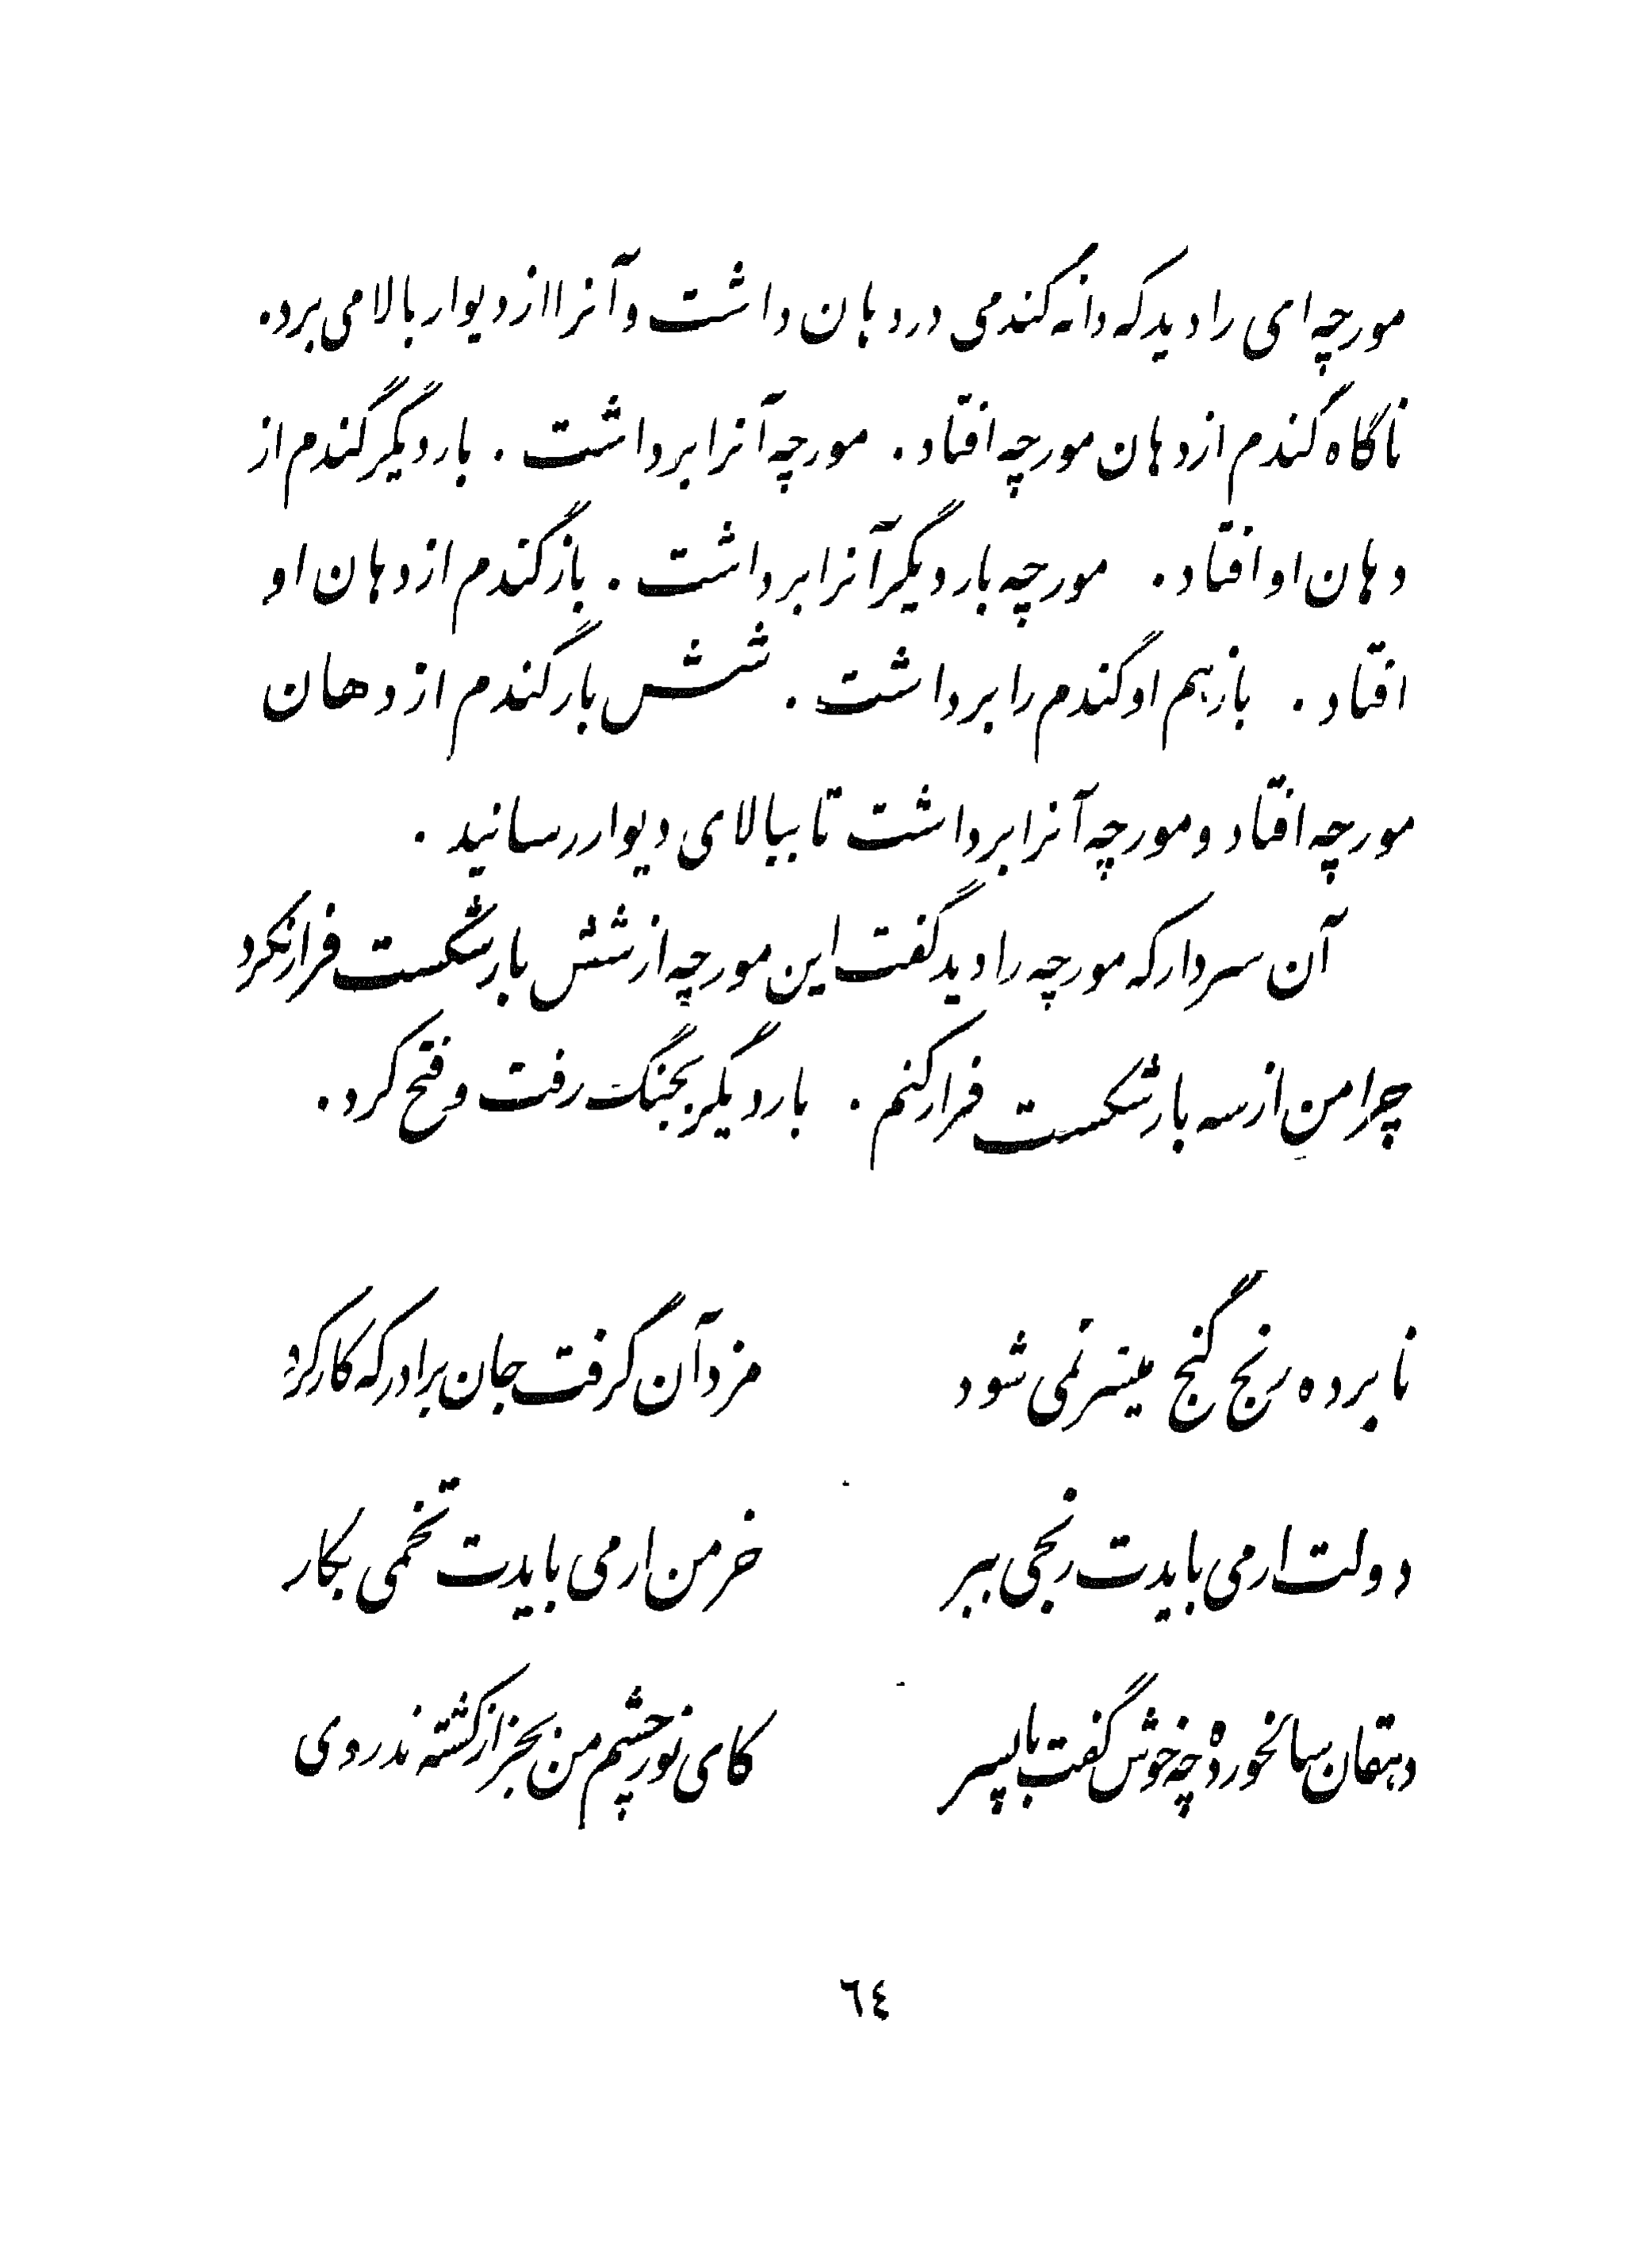 مورچه‌ای را دید که دانه گندمی در دهان داشت و آنرا از دیوار بالا می برد.
ناگاه گندم از دهان مورچه افتاد. مورچه آنرا برداشت. بار دیگر گندم از
دهان او افتاد. مورچه بار دیگر آنرا برداشت. باز گندم از دهان او
افتاد. باز هم او گندم را برداشت. شش بار گندم از دهان
مورچه افتاد و مورچه آنرا برداشت تا ببالای دیوار رسانید.
آن سردار که مورچه را دید گفت این مورچه از شش بار شکست فرار نکرد
چرا من از سه بار شکست فرار کنم. بار دیگر بجنگ رفت و فتح کرد.
نابرده رنج گنج میسر نمی شود مزد آن گرفت جان برادر که کار کرد
دولت ار می بایدت رنجی ببر خرمن ار می بایدت تخمی بکار
دهقان سالخورده چه خوش گفت با پسر کای نور چشم من بجز از کشته ندروی
٦٤